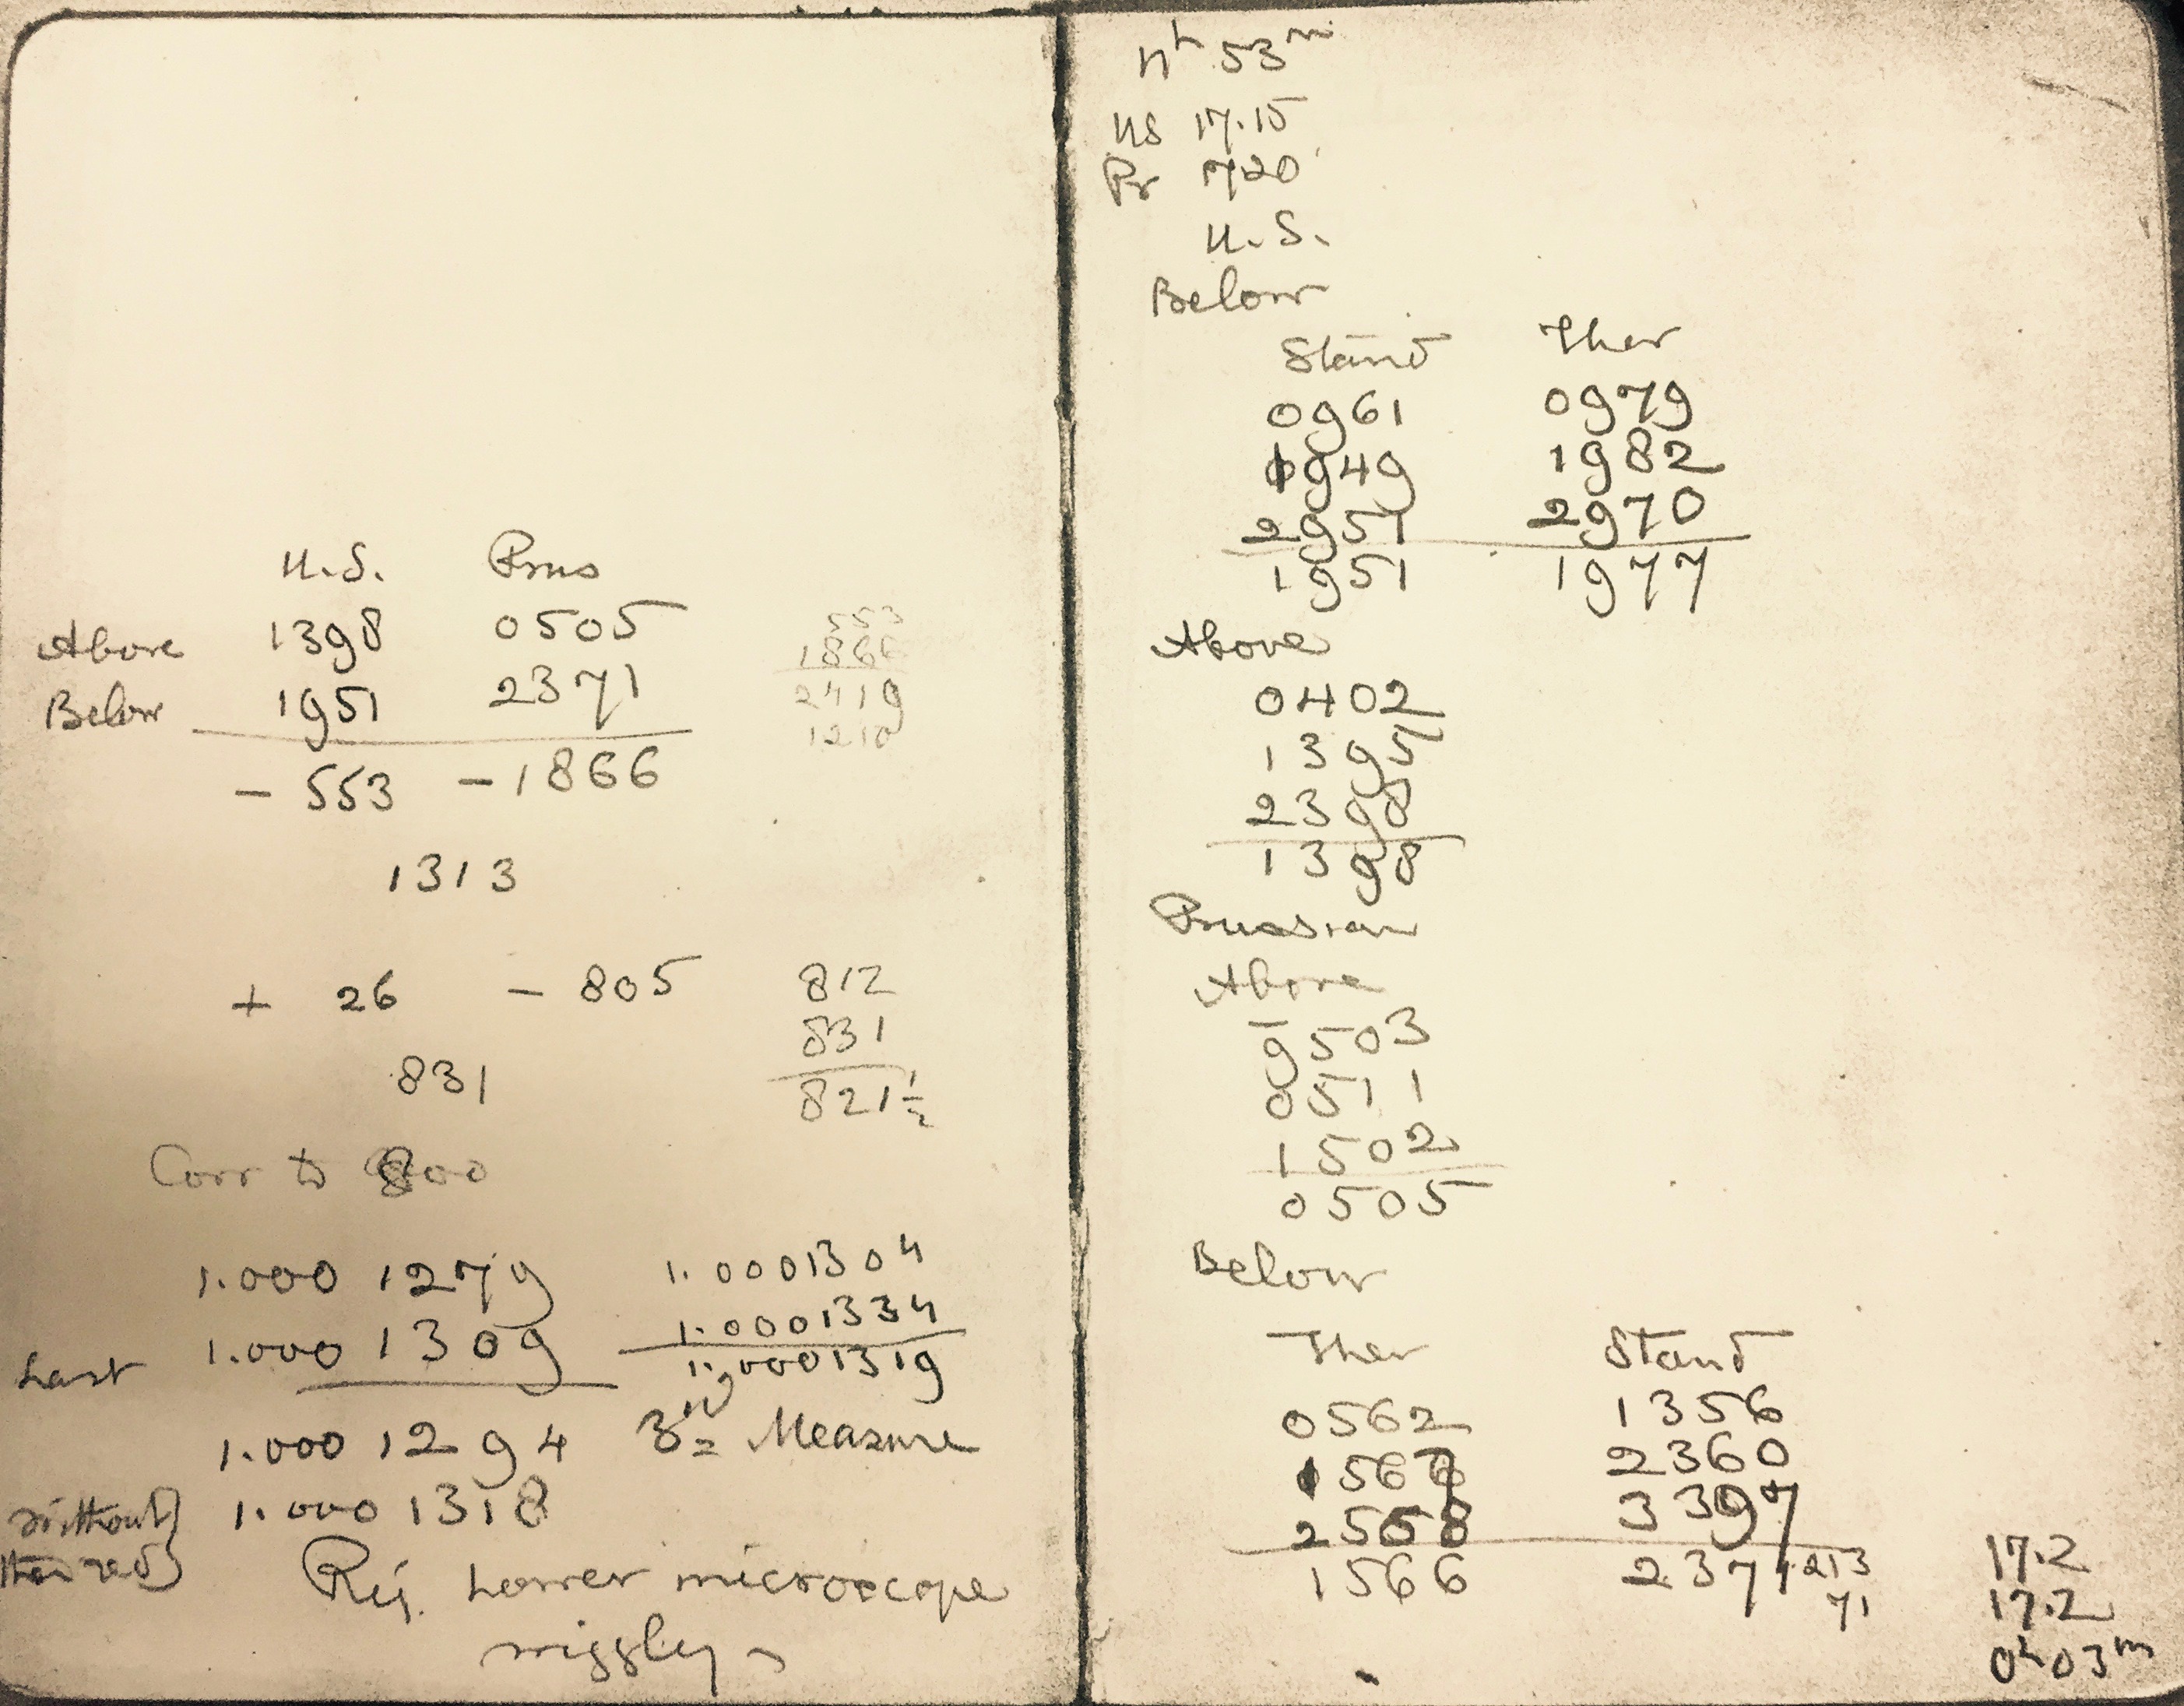 U.S. Prus
Above 1398 0505
Below 1951 2371
- 553 - 1866
553
1866
2419
1210
1313
+ 26 - 805
831
812
831
821½
Corr to 800
1.000 1279
Last 1.000 1309
1.000 1294
without ther red 1.000 1318
1.0001304
1.0001334
1.0001319
3rd Measure
Rej. Lower microscope
wiggly
11h 53m
US 17.15
Pr 720
U.S.
Below
Stand Ther
0961 0979
1949 1982
2951 2970
1951 1977
Above
0402
1395
2398
1398
Prussian
Above
9503
0511
1502
0505
Below
Ther Stand
0562 1356
2360
2568 3397
1566 2371 213
71
17.2
17.2
0h03m